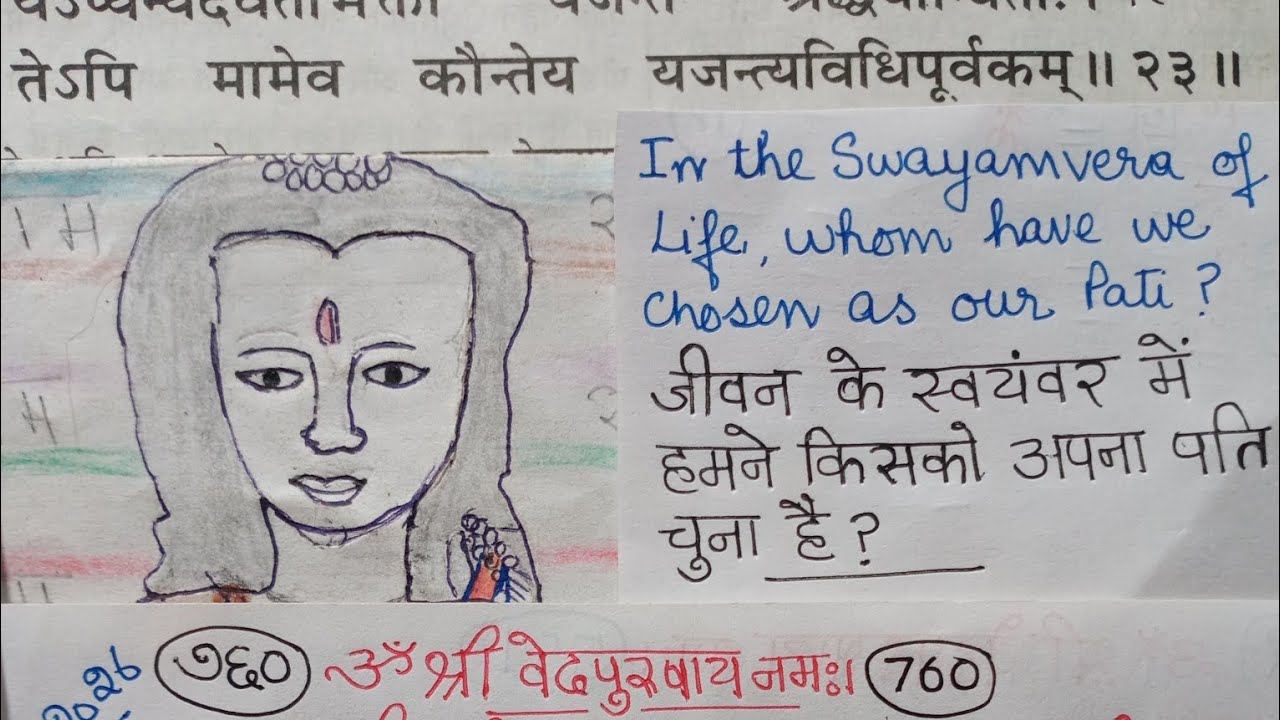 तेऽपि मामेव कौन्तेय यजन्त्यविधिपूर्वकम् ॥ २३ ॥
In the Swayamvera of
Life, whom have we
chosen as our Pati?
जीवन के स्वयंवर में
हमने किसको अपना पति
चुना है?
७६० ॐ श्री वेदपुरुषाय नमः। 760